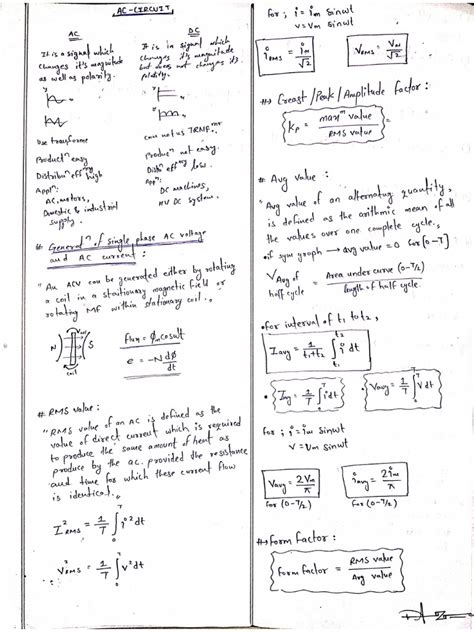 AC-CIRCUIT
AC
It is a signal which
changes it's magnitude
as well as polarity.
Use transformer
Productⁿ easy
Distributⁿ effⁿʸ high
Applⁿ:
AC, motors,
Domestic & industrial
supply.
DC
It is in signal which
changes it's magnitude
but does not changes its
polarity.
can not us TRMF.
Productⁿ not easy.
Distⁿ effⁿʸ low.
Appⁿ:
DC machines,
HV DC system.
# Generalⁿ of single phase AC voltage
and AC current :
" An ACV can be generated either by rotating
a coil in a stationary magnetic field or
rotating MF within stationary coil.,
N
S
coil
Flux = ϕm cosωt
e = -N dϕ/dt
# RMS value :
"RMS value of an AC is defined as the
value of direct current which is required
to produce the same amount of heat as
produce by the ac. provided the resistance
and time for which these current flow
is identical."
I²RMS = 1/T ∫₀ᵀ i² dt
V²RMS = 1/T ∫₀ᵀ v² dt
for ; i = im sinωt
v = vm sinωt
iRMS = im/√2
VRMS = Vm/√2
# Creast/Peak/Amplitude factor :
Kp = maxᵐ value / RMS value
# Avg value :
"Avg value of an alternating quantity,
is defined as the arithmic mean of all
the values over one complete cycle.,
• if sym graph → avg value = 0 for [0-T]
VAvg of half cycle = Area under curve (0-T/2) / length of half cycle.
• for interval of t₁ to t₂,
Iavg = 1/t₁+t₂ ∫t₁^t₂ i dt
• Iavg = 1/T ∫₀ᵀ i dt
• Vavg = 1/T ∫₀ᵀ V dt
for ; i = im sinωt
V = vm sinωt
Vavg = 2Vm/π
for (0-T/2)
iavg = 2im/π
for (0-T/2)
# Form Factor :
form factor = RMS value / Avg value